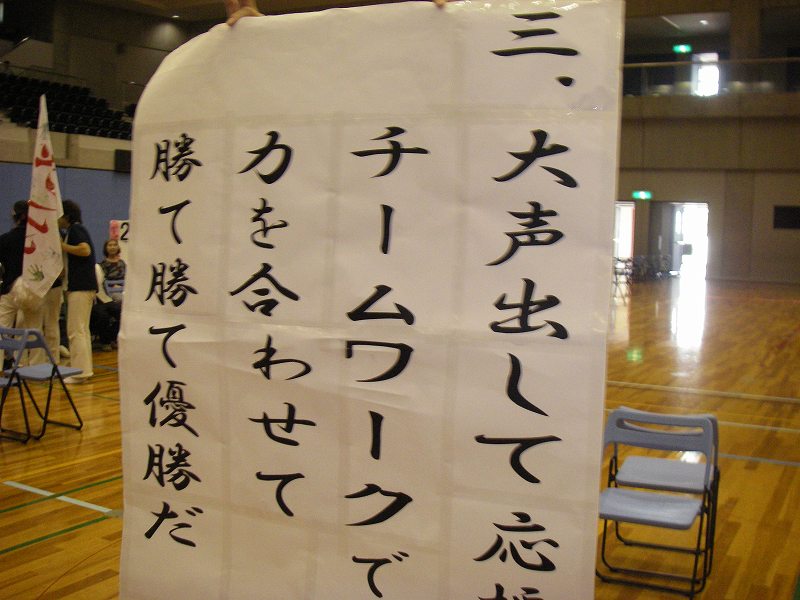 三、大声出して応援
チームワークで
力を合わせて
勝て勝て優勝だ
2